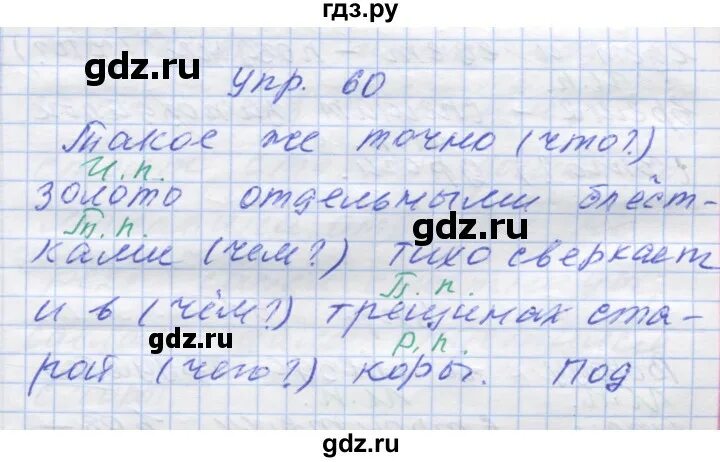 гдз.ру
gdz.ru
упр. 60
Такое же точно (что?)
И.п.
золото отдельными блёст-
Т.п.
gdz.ru
ками (чем?) тихо сверкает
П.п.
и в (чём?) трещинах ста-
gdz.ru
Р.п.
рой (чего?) коры. Под
gdz.ru